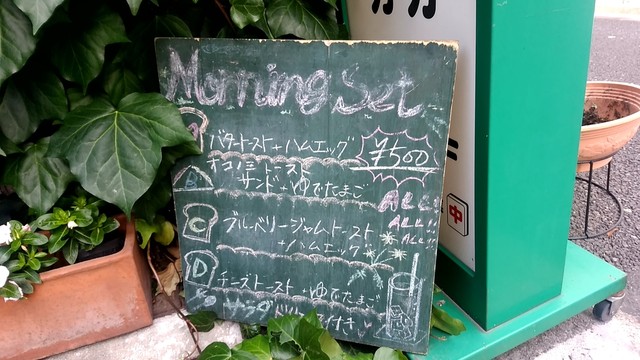 Morning Set
バタートースト+ハムエッグ
¥500
サンド+ゆでたまご
ALL!!
ALL!!
ALL!!
C
ブルーベリージャムトースト
+ハムエッグ
D
チーズトースト+ゆでたまご
サラダ
付き
中